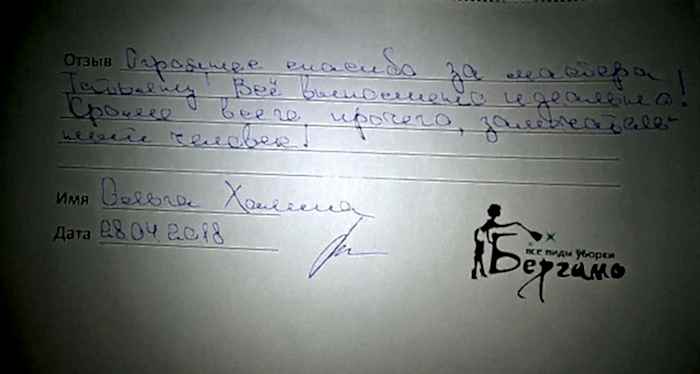 Отзыв Огромное спасибо за мастера
Татьяну! Всё выполнено идеально!
Кроме всего прочего, замечатель-
ный человек!
Имя Ольга Халина
Дата 28.04.2018
все виды уборки
Бергамо